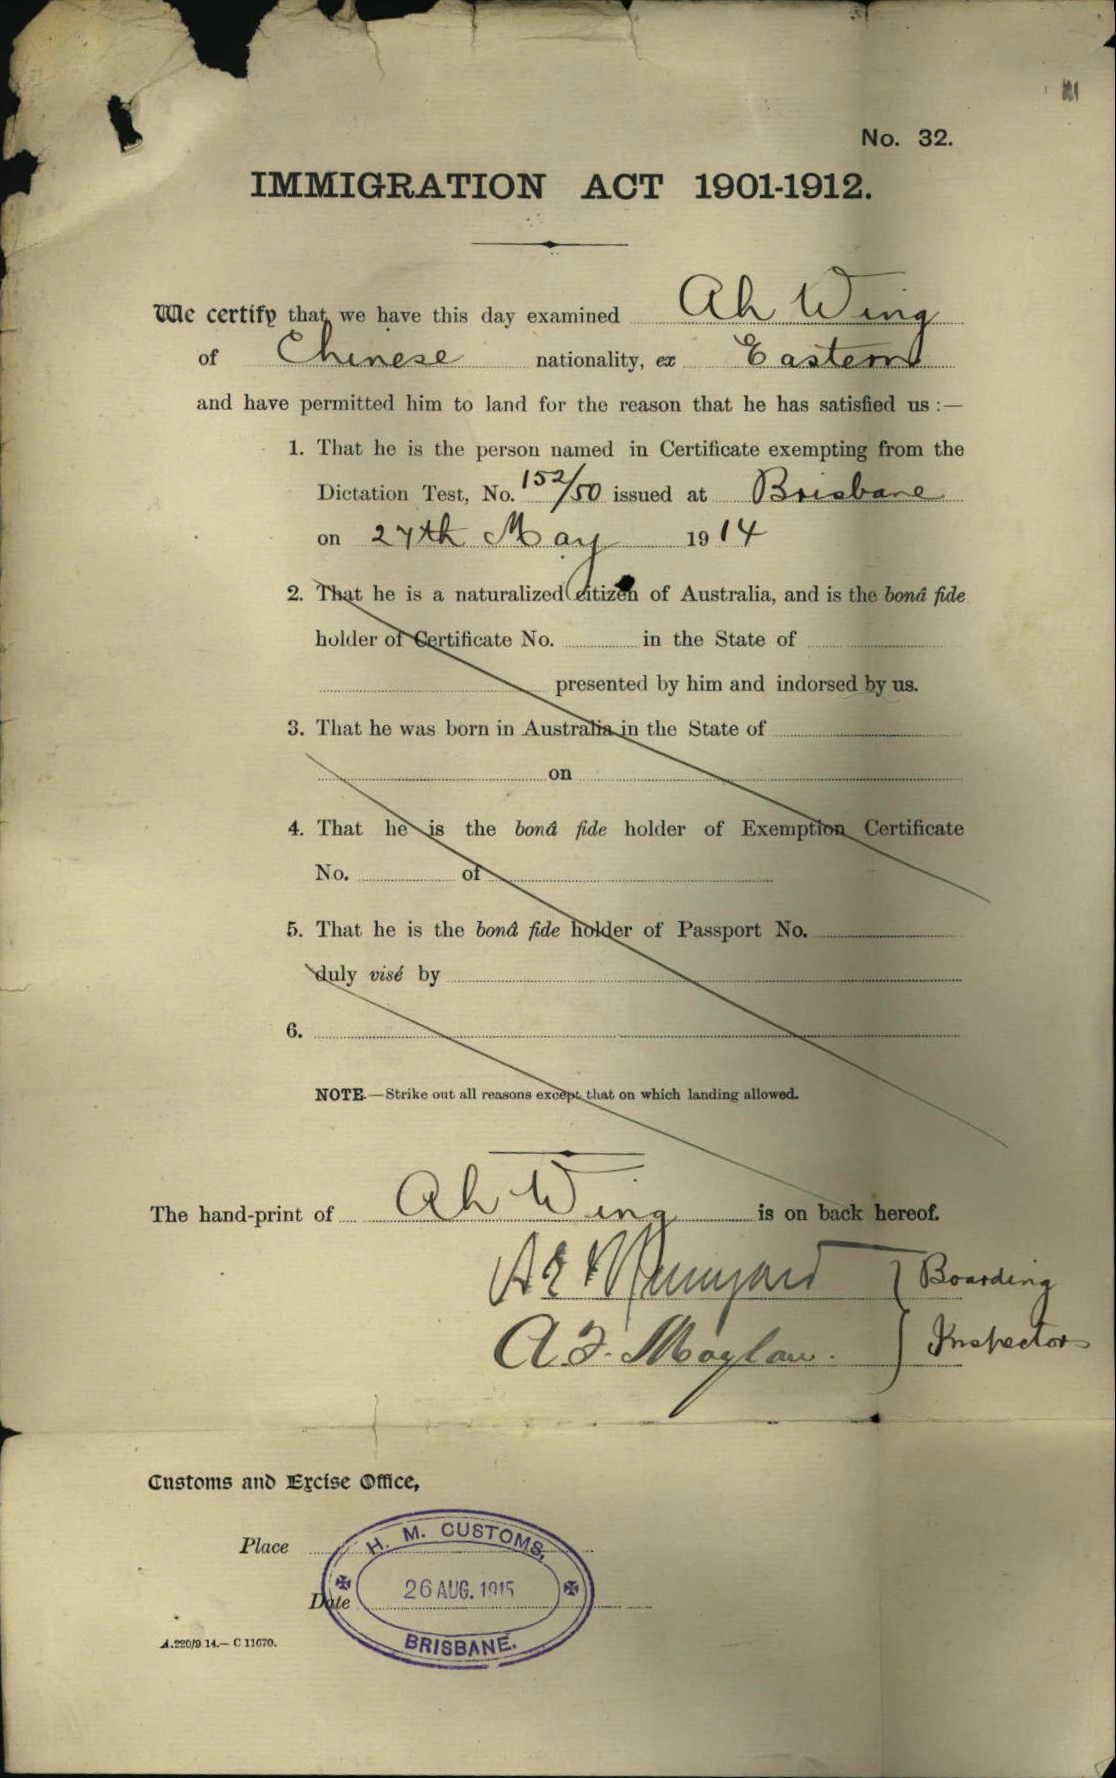 No. 32.
IMMIGRATION ACT 1901-1912.
We certify that we have this day examined Ah Wing
of Chinese nationality, ex Eastern
and have permitted him to land for the reason that he has satisfied us :—
1. That he is the person named in Certificate exempting from the
Dictation Test, No. 152/50 issued at Brisbane
on 27th May 1914
2. That he is a naturalized citizen of Australia, and is the bonâ fide
holder of Certificate No. in the State of
presented by him and indorsed by us.
3. That he was born in Australia in the State of
on
4. That he is the bonâ fide holder of Exemption Certificate
No. of
5. That he is the bonâ fide holder of Passport No.
duly visé by
6.
NOTE.—Strike out all reasons except that on which landing allowed.
The hand-print of Ah Wing is on back hereof.
Boarding
A. F. Inspectors
Customs and Excise Office,
Place
H. M. CUSTOMS,
Date 26 AUG. 1915
BRISBANE.
A.220/9.14.— C 11670.